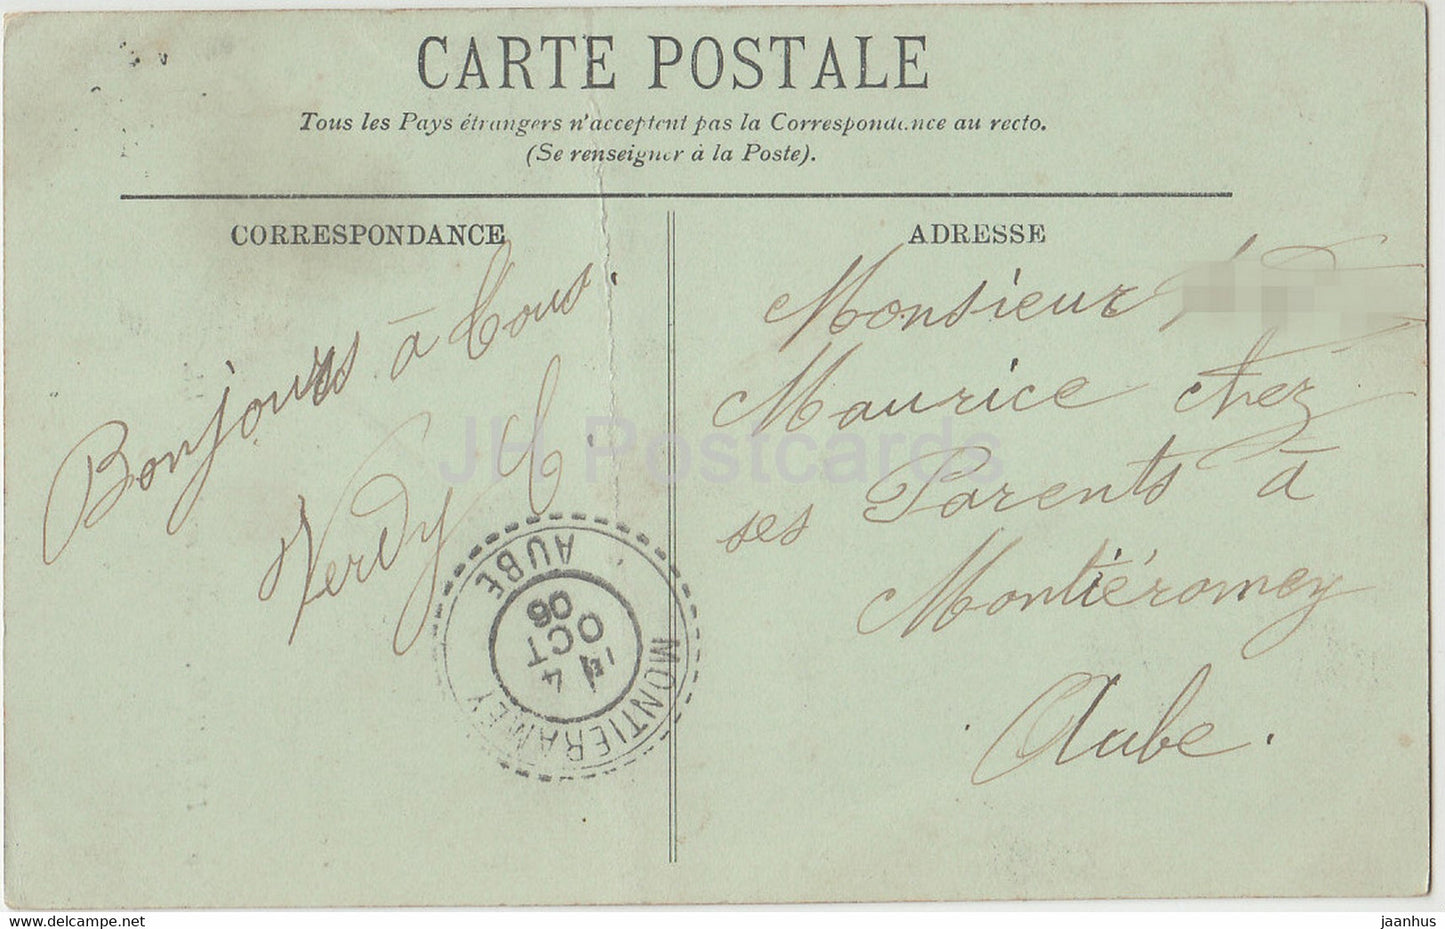 CARTE POSTALE
Tous les Pays étrangers n'acceptent pas la Correspondance au recto.
(Se renseigner à la Poste).
CORRESPONDANCE
Bonjours à tous.
Verdy C.
ADRESSE
Monsieur
Maurice chez
ses Parents à
Montiéramey
Aube.
MONTIERAMEY AUBE
4
OCT
06
JH Postcards
delcampe.net
jaanhus